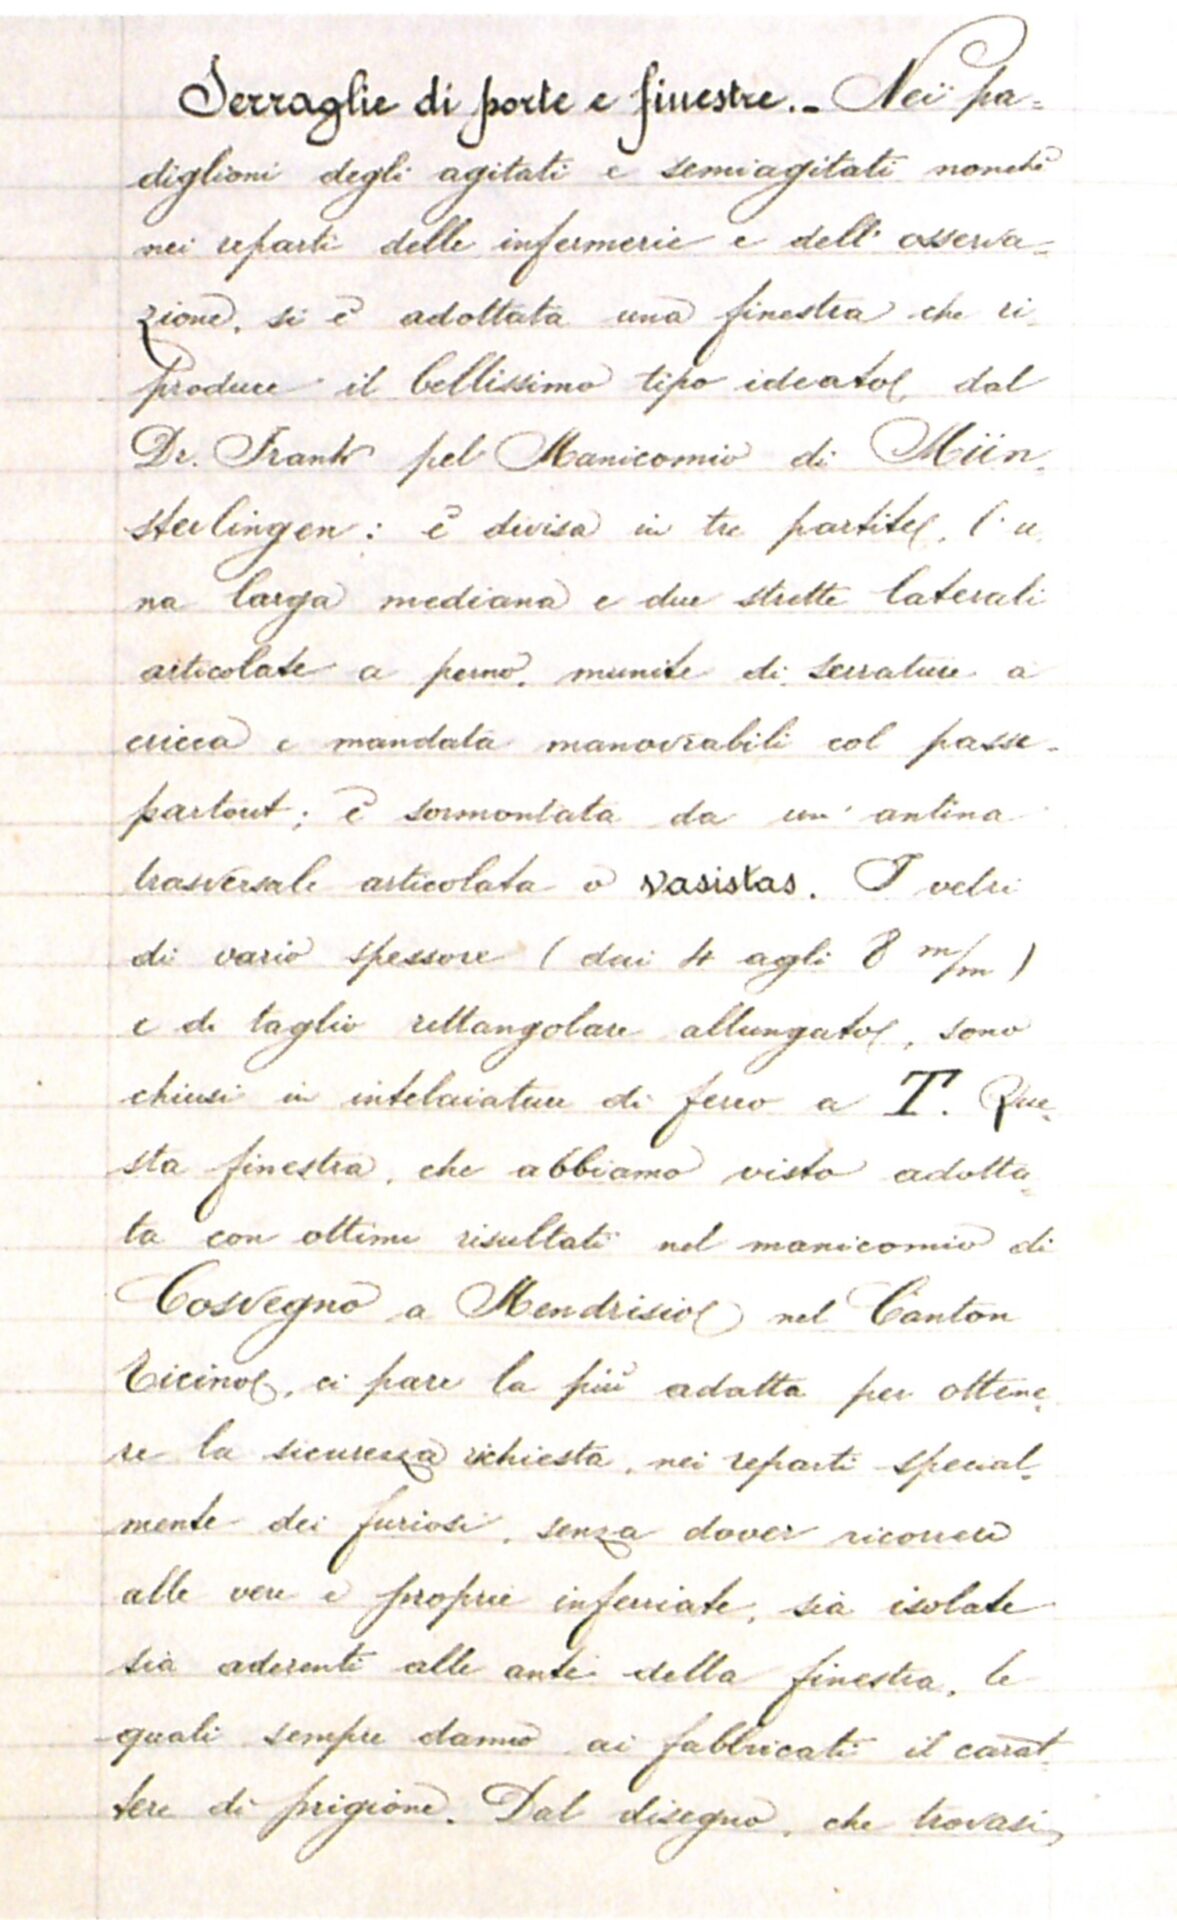 Serraglie di porte e finestre.- Nei pa-
diglioni degli agitati e semiagitati nonchè
nei reparti delle infermerie e dell'osserva-
zione, si è adottata una finestra che ri-
produce il bellissimo tipo ideato dal
Dr. Frank pel Manicomio di Mün-
sterlingen: è divisa in tre partite, l'u-
na larga mediana e due strette laterali
articolate a perno, munite di serrature a
cricca e mandata manovrabili col passe-
partout; è sormontata da un'antina
trasversale articolata o vasistas. I vetri
di vario spessore (dai 4 agli 8 m/m)
e di taglio rettangolare allungato, sono
chiusi in intelaiature di ferro a T. Que-
sta finestra, che abbiamo visto adotta-
ta con ottimi risultati nel manicomio di
Cosvegno a Mendrisio nel Canton
Ticino, ci pare la più adatta per ottene-
re la sicurezza richiesta, nei reparti special-
mente dei furiosi, senza dover ricorrere
alle vere e proprie inferriate, sia isolate
sia aderenti alle ante della finestra, le
quali sempre danno ai fabbricati il carat-
tere di prigione. Dal disegno, che trovasi